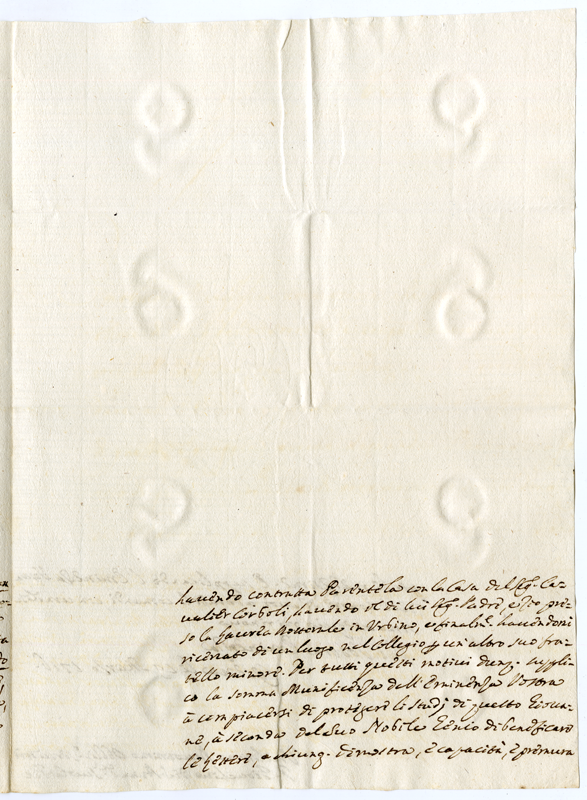 havendo contratta Parentela con la Casa del Sig.r Ca-
valier Corboli, havendo il di lui Sig.r Padre,
so la in Urbino, e finalm.te havendomi
ricercato di un luogo nel Collegio p un altro suo fra-
tello minore. Per tutti questi motivi dunq. suppli-
co la somma Munificenza dell'Eminenza Vostra
à compiacersi di proteggere li Studj di questo Giova-
ne, à seconda del Suo Nobile Genio di beneficare
le lettere, e chiunq. dimostra, e capacità, e premura